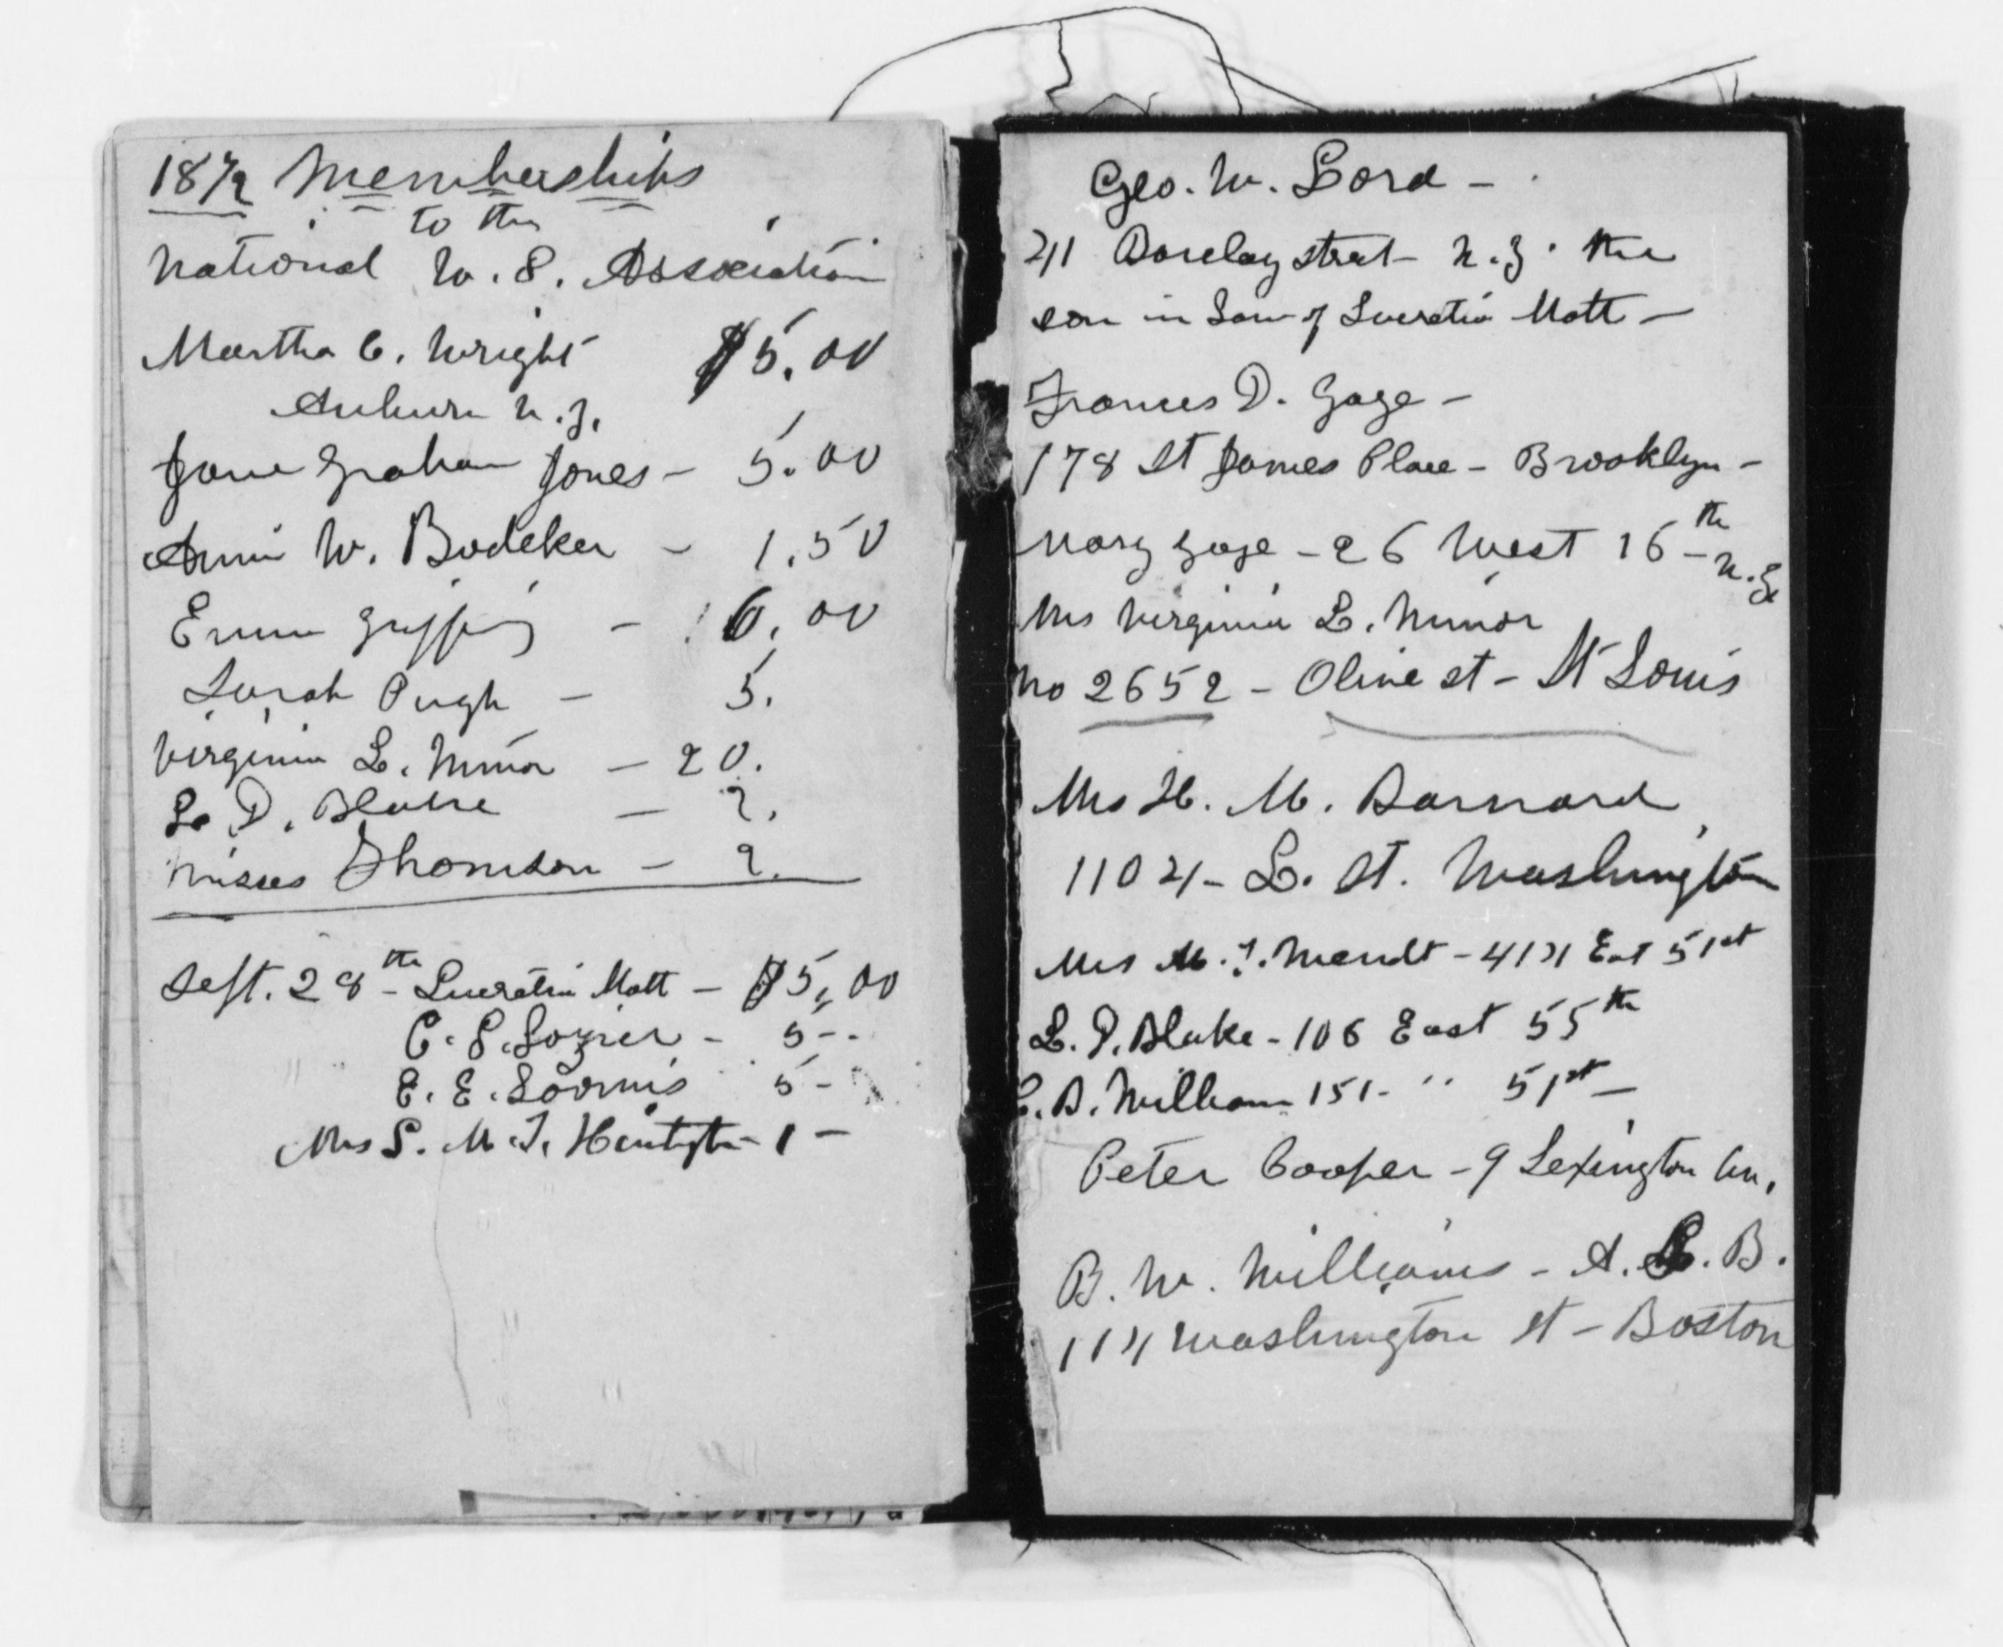 1872 Memberships
to the
National W. S. Association
Martha C. Wright $5.00
Auburn N.Y.
Jane Graham Jones - 5.00
Annie W. Bodeker - 1.50
Emma Griffing - 6.00
Sarah Pugh - 5.
Virginia L. Minor - 20.
L. D. Blake - 2.
Misses Thomson - 2.
Sept. 28th - Lucretia Mott - $5,00
C. S. Lozier - 5 -
E. E. Loomis 5 -
Mrs S. M. T. - 1 -
Geo. W. Lord -
41 Barclay street - N.Y. the
son in law of Lucretia Mott -
Frances D. Gage -
178 St James Place - Brooklyn -
Mary Gage - 26 West 16th - N.Y.
Mrs Virginia L. Minor
No 2652 - Olive st - St Louis
Mrs H. M. Barnard
1104 - L. St. Washington
Mrs M. - 414 East 51st
L. D. Blake - 106 East 55th
C. B. William 151 - " 51st -
Peter Cooper - 9 Lexington Av.
B. W. Williams - A. L. B.
114 Washington st - Boston